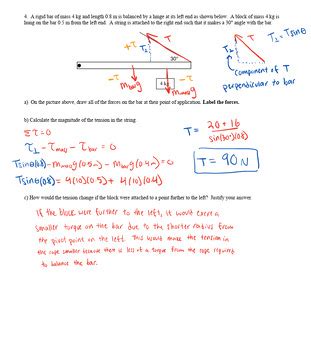 4. A rigid bar of mass 4 kg and length 0.8 m is balanced by a hinge at its left end as shown below. A block of mass 4 kg is
hung on the bar 0.5 m from the left end. A string is attached to the right end such that it makes a 30° angle with the bar.
T⊥ = Tsinθ
+τ T⊥ T
T⊥ T
30°
component of T
perpendicular to bar
-τ
m bar g
4 kg
-τ
m mass g
a) On the picture above, draw all of the forces on the bar at their point of application. Label the forces.
b) Calculate the magnitude of the tension in the string.
Στ=0
τ⊥ - τ mass - τ bar = 0
Tsinθ(0.8) - m mass g(0.5m) - m bar g(0.4m) = 0
Tsinθ(0.8) = 4(10)(0.5) + 4(10)(0.4)
T = 20 + 16 / sin(30°)(0.8)
T = 90 N
c) How would the tension change if the block were attached to a point further to the left? Justify your answer.
If the block were further to the left, it would exert a
smaller torque on the bar due to the shorter radius from
the pivot point on the left. This would make the tension in
the rope smaller because there is less of a torque from the rope required
to balance the bar.